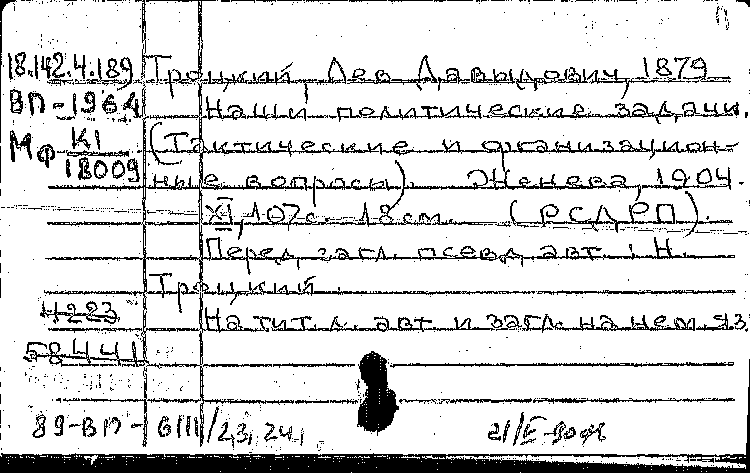 18.142.4.189 Троцкий, Лев Давыдович, 1879
ВП-1964 Наши политические задачи.
МФ К1/18009 (Тактические и организацион-
ные вопросы). Женева, 1904.
XI, 107 с. 18 см. (РСДРП).
Перед загл. псевд. авт.: Н.
Троцкий.
4223 На тит. л. авт и загл. на нем. яз.
58441
89-ВП-6111/23, 24.